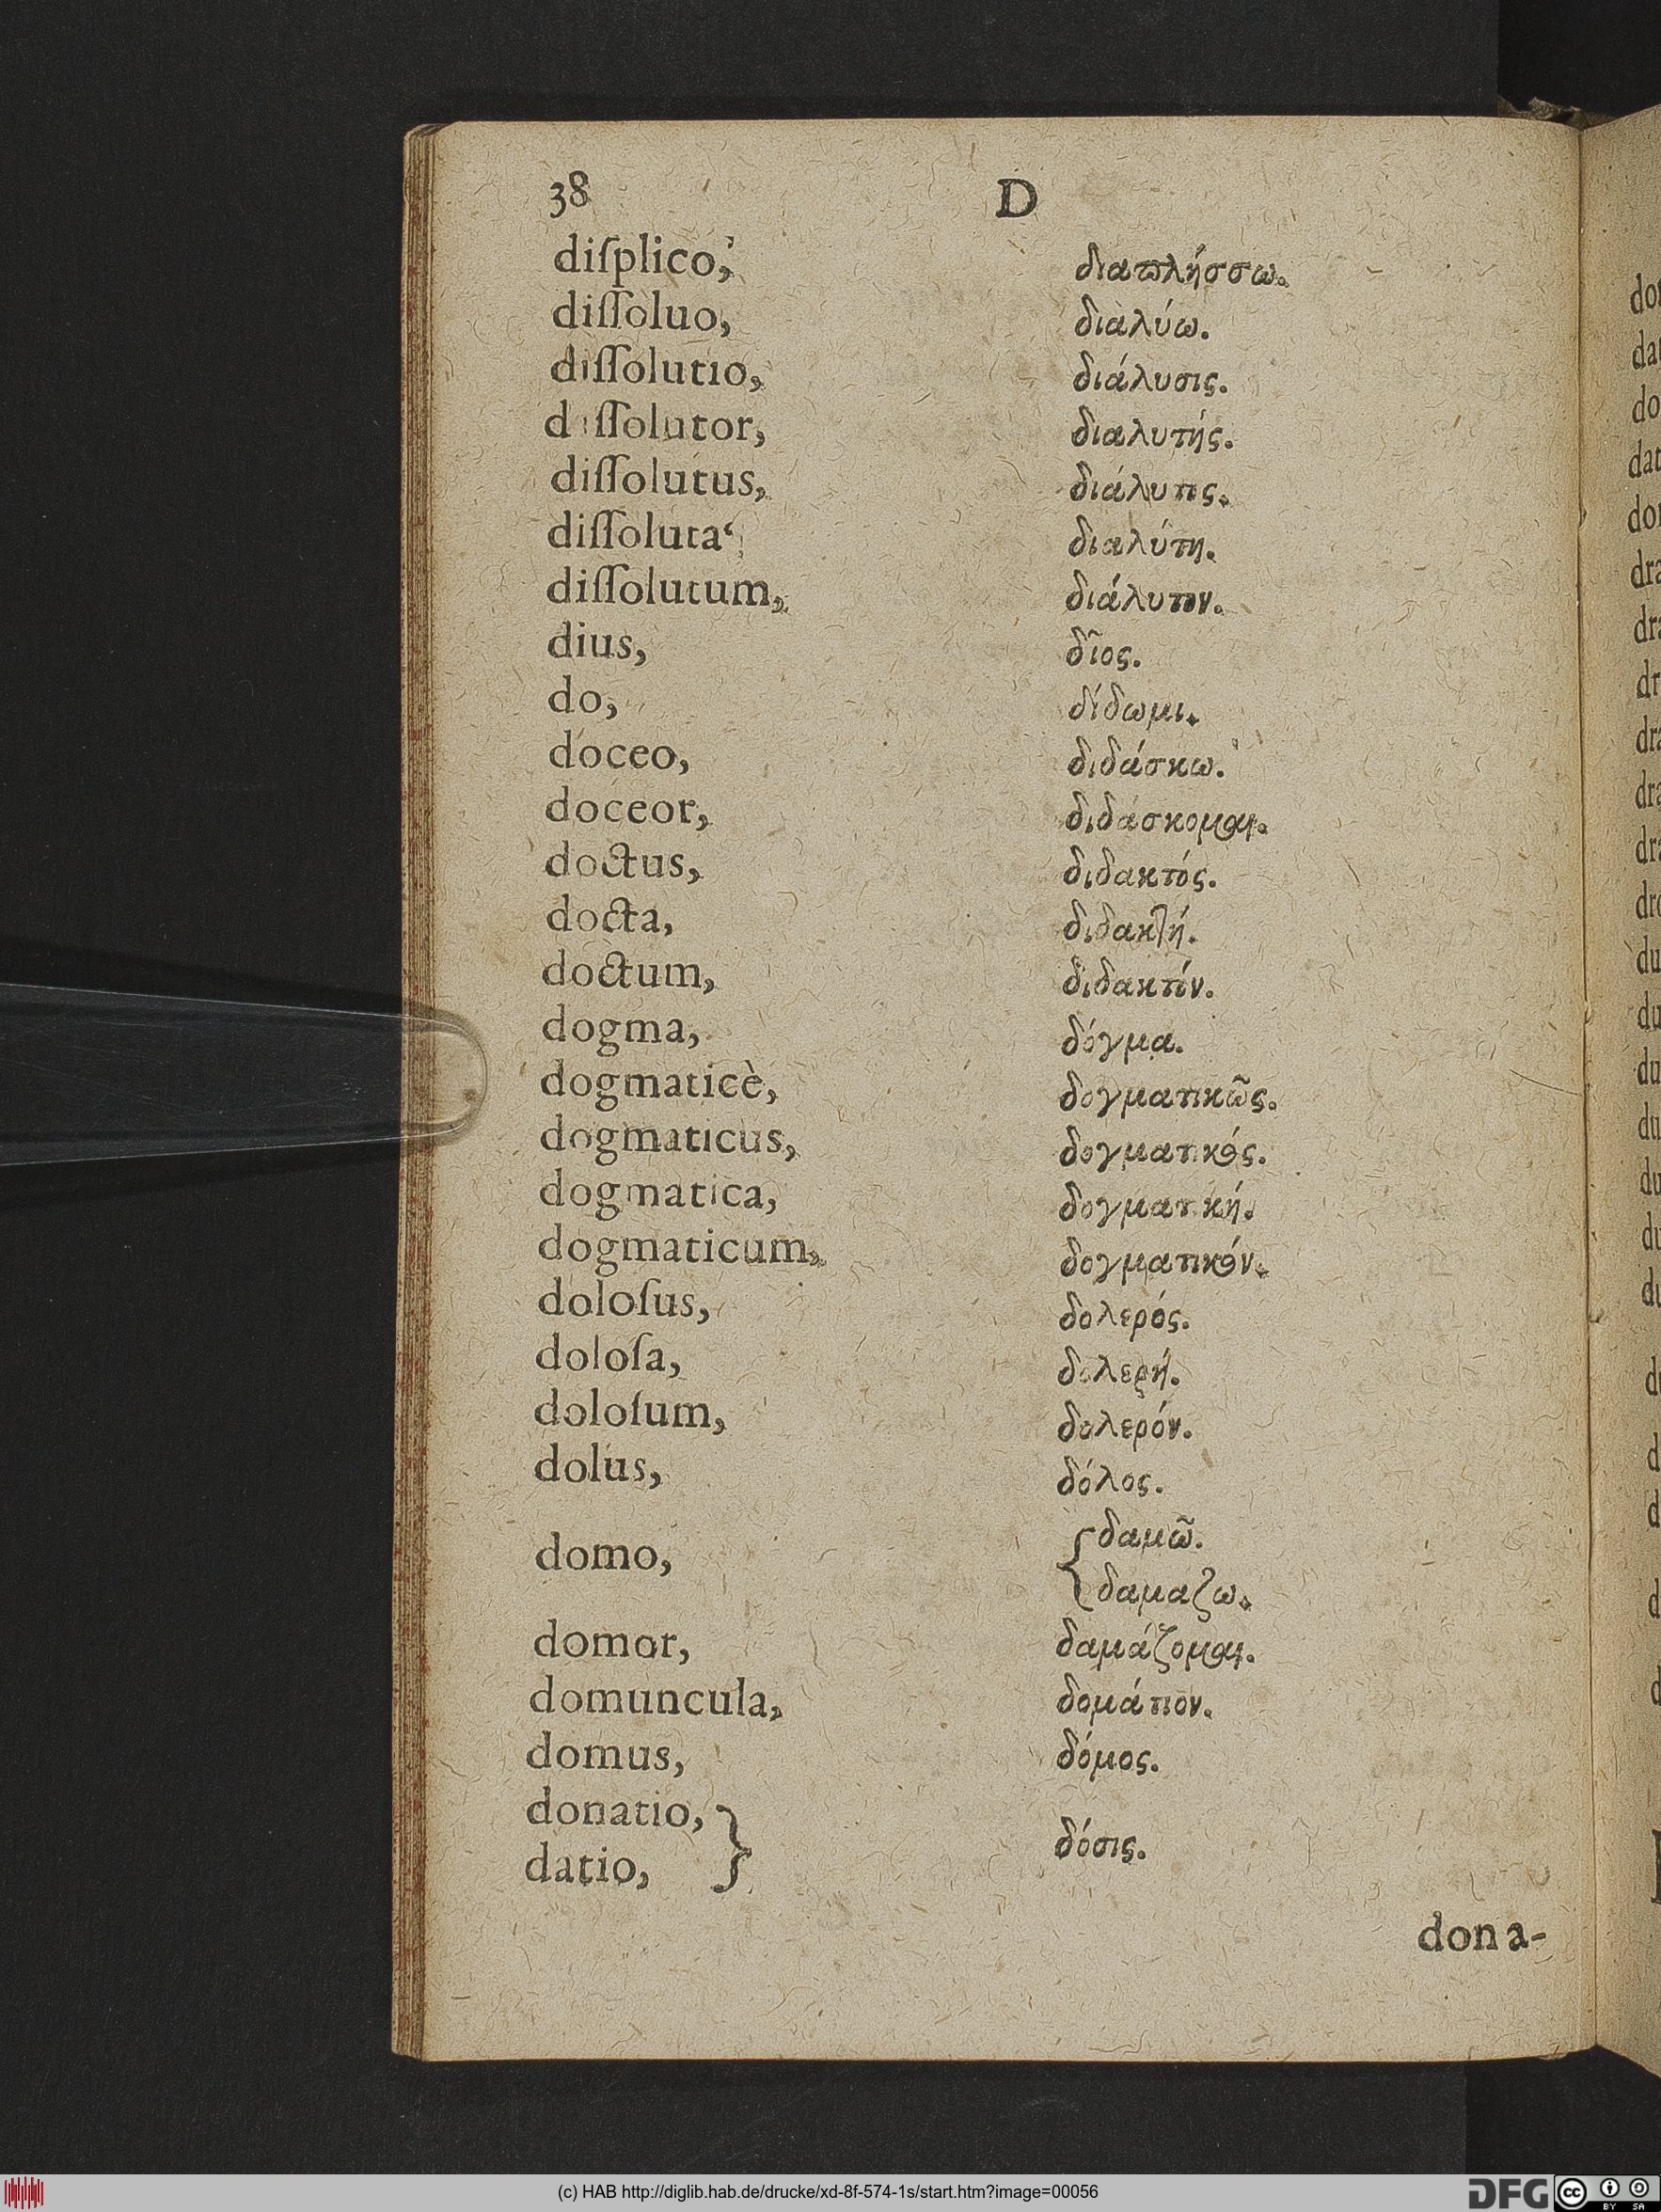 38 D
diſplico, διαπλήσσω.
diſſoluo, διαλύω.
diſſolutio, διάλυσις.
diſſolutor, διαλυτής.
diſſolutus, διάλυτος.
diſſoluta, διαλύτη.
diſſolutum, διάλυτον.
dius, δῖος.
do, δίδωμι.
doceo, διδάσκω.
doceor, διδάσκομαι.
doctus, διδακτός.
docta, διδακτή.
doctum, διδακτόν.
dogma, δόγμα.
dogmaticè, δογματικῶς.
dogmaticus, δογματικός.
dogmatica, δογματική.
dogmaticum, δογματικόν.
doloſus, δολερός.
doloſa, δολερή.
doloſum, δολερόν.
dolus, δόλος.
domo, { δαμῶ.
δαμαζω.
domor, δαμάζομαι.
domuncula, δομάτιον.
domus, δόμος.
donatio,
datio, } δόσις.
dona-
(c) HAB http://diglib.hab.de/drucke/xd-8f-574-1s/start.htm?image=00056
DFG
cc BY SA